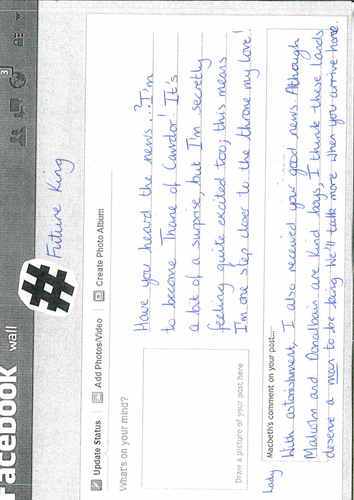 Facebook wall
3
# Future King
Update Status | Add Photos/Video | Create Photo Album
What's on your mind?
Have you heard the news...? I'm
to become Thane of Cawdor! It's
a bit of a surprise, but I'm secretly
feeling quite excited too; this means
I'm one step closer to the throne my love!
Draw a picture of your post here
Lady Macbeth's comment on your post....
With astonishment, I also received your good news. Although
Malcolm and Donalbain are kind boys, I think these lands
deserve a man to be king. We'll talk more when you arrive home.